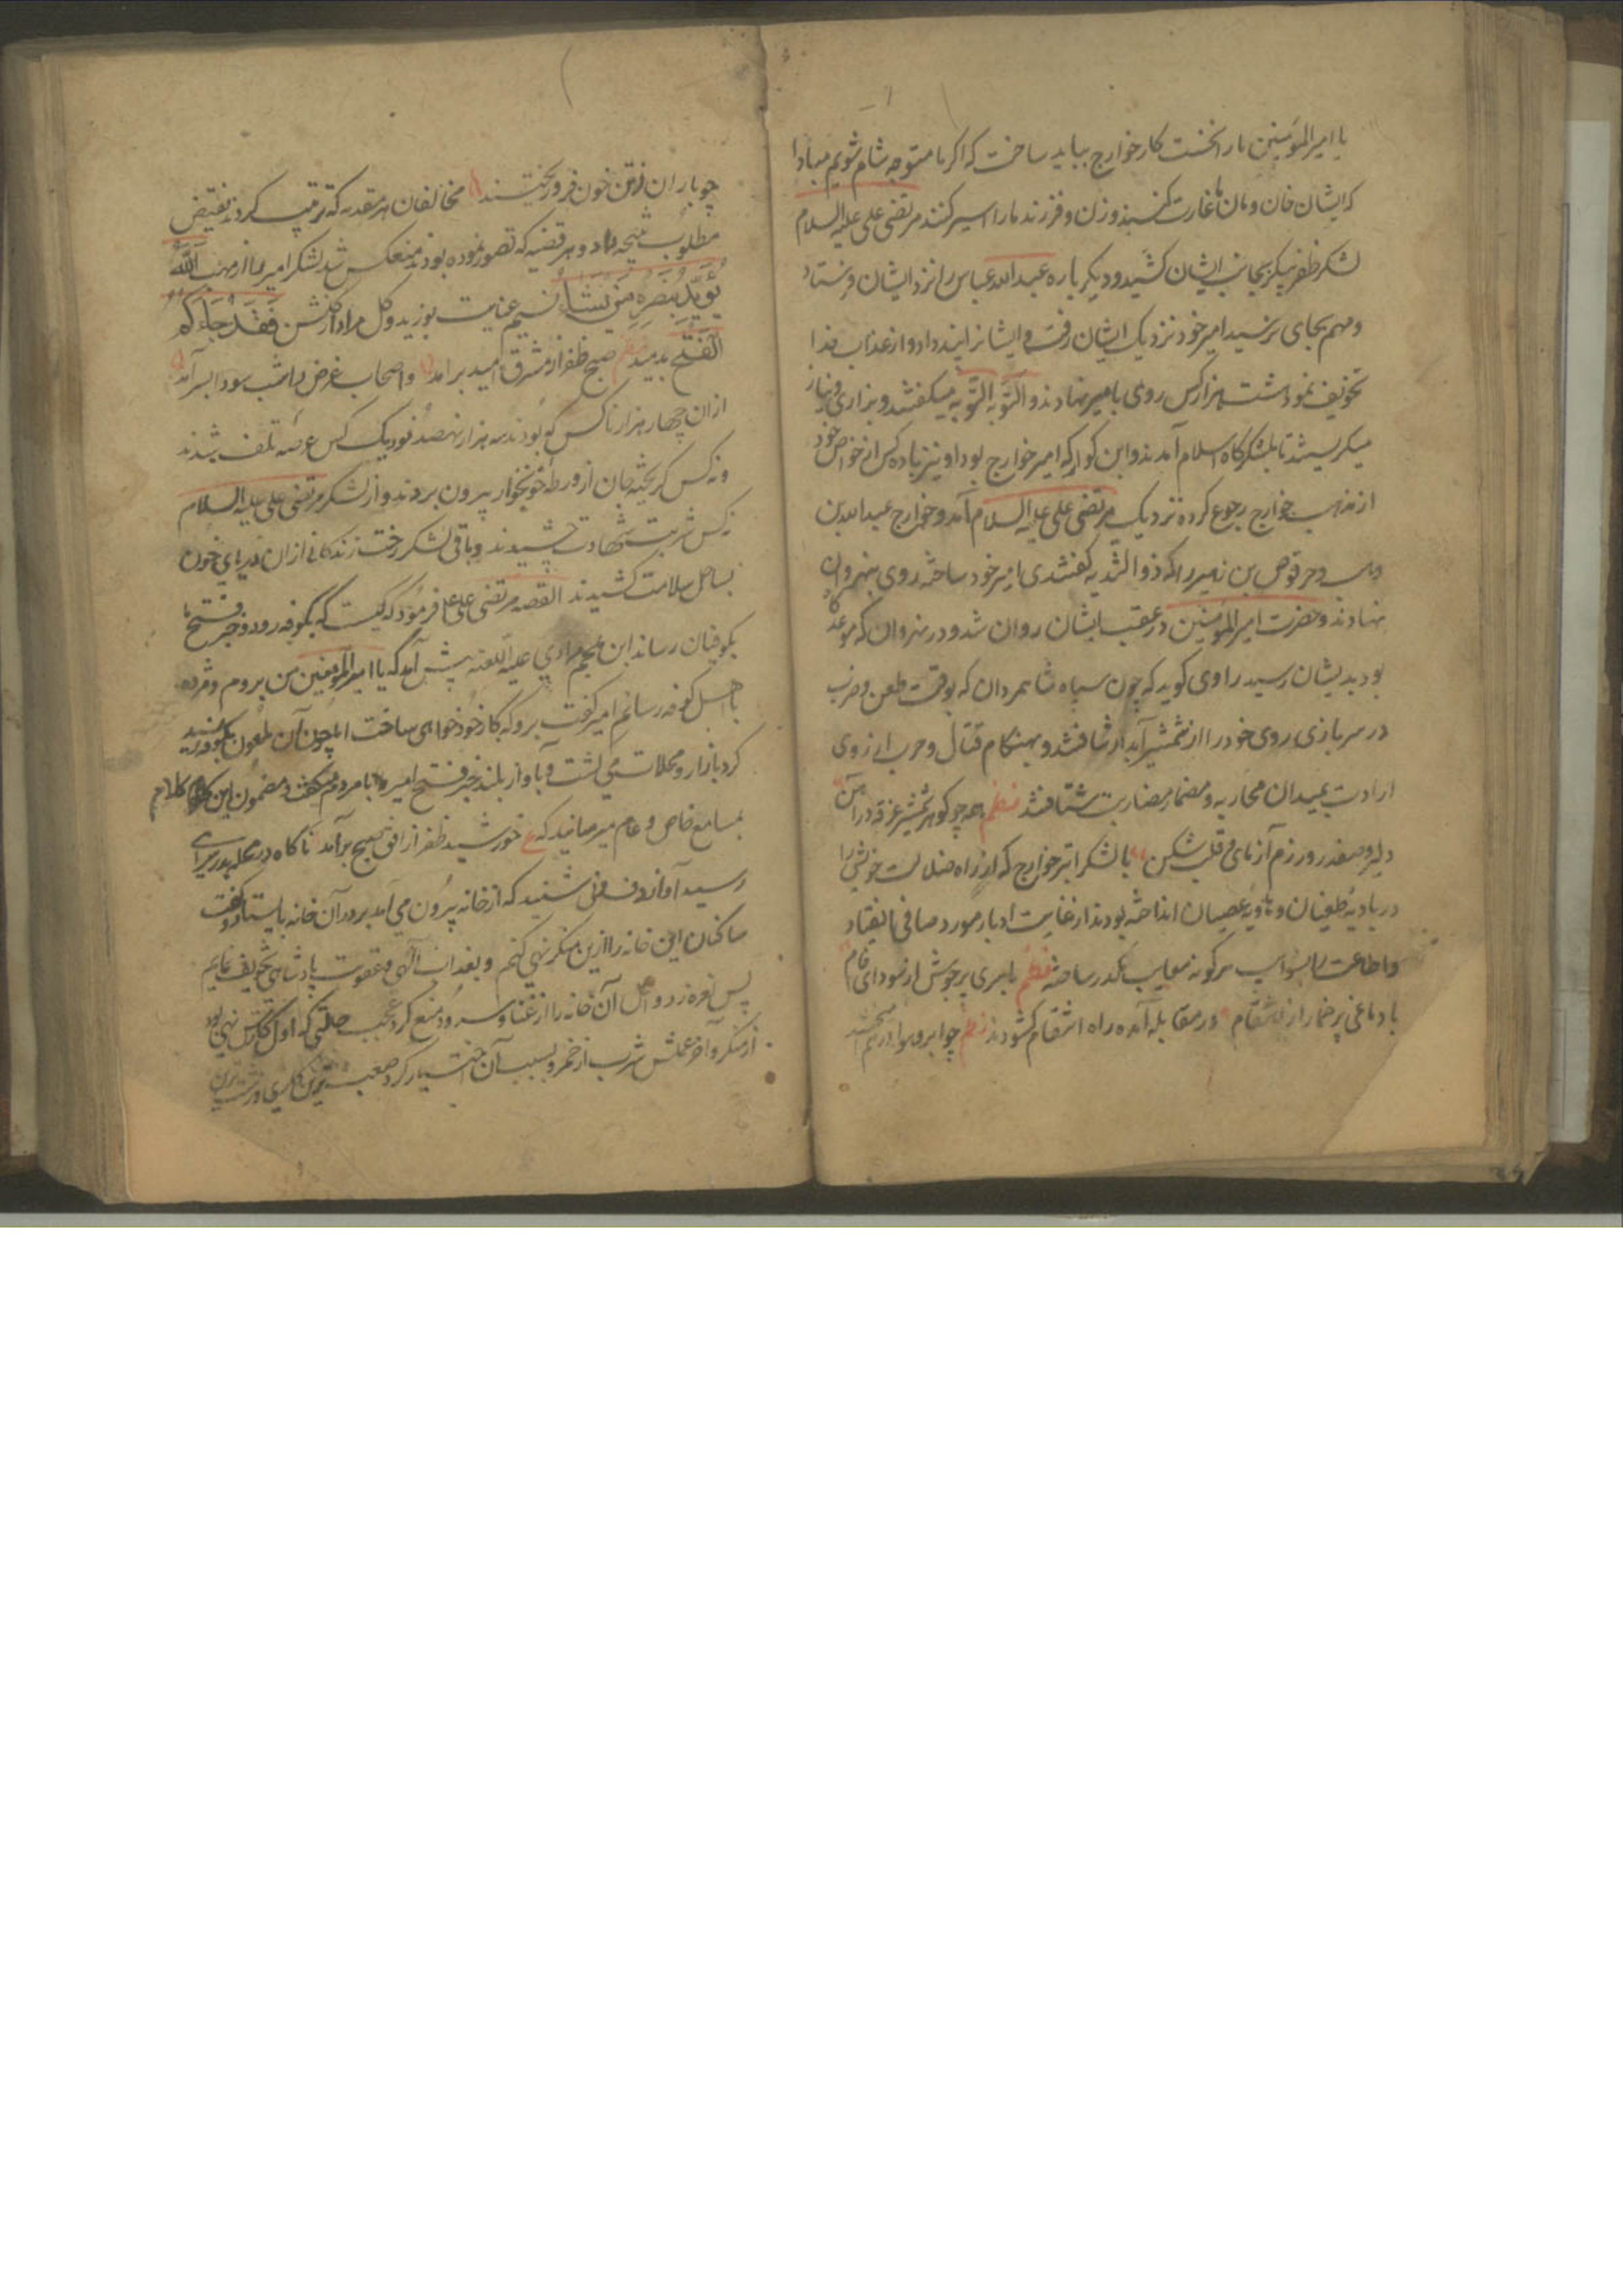 یا امیرالمؤمنین ما را نخست کار خوارج بباید ساخت که اگر ما متوجه شام شویم مبادا
که ایشان خان و مان ما غارت کنند و زن و فرزند ما را اسیر کنند مرتضی علی علیه السلام
لشکر ظفر پیکر بجانب ایشان کشید و دیگر باره عبدالله عباس را نزد ایشان فرستاد
و مهم بجای نرسید امیر خود نزدیک ایشان رفت و ایشانرا پند داد و از عذاب خدا
تخویف نمود هشت هزار کس روی بامیر نهادند و التوبه التوبه میگفتند و بزاری و نیاز
میگریستند تا بلشکرگاه اسلام آمدند و ابن کوا که امیر خوارج بود او نیز با ده کس از خواص خود
از مذهب خوارج رجوع کرده نزدیک مرتضی علی علیه السلام آمد و خوارج عبدالله بن
وهب و حرقوص بن زهیر را که ذو الثدیه گفتندی امیر خود ساخته روی بنهروان
نهادند و حضرت امیرالمؤمنین در عقب ایشان روان شد و در نهروان که موعد
بود بدیشان رسید راوی گوید که چون سپاه شاهمردان که بوقت طعن و ضرب
در سربازی روی خود را از شمشیر آبدار نتافتند و بهنگام قتال و حرب از روی
ارادت بمیدان محاربه و مضمار مضاربت شتافتند نظم همه چو گوهر شمشیر غرقه در آهن
دلیر و صفدر و رزم آزمای و قلب شکن با لشکر ابتر خوارج که از راه ضلالت خویش را
در بادیه طغیان و هاویه عصیان انداخته بودند از غایت ادبار مورد صافی انقیاد
و اطاعت را بشوایب هرگونه معایب مکدر ساخته نظم با سری پر جوش از سودای خام
با دماغی پر خمار از انتقام در مقابله آمده راه انتقام گشودند نظم چو ابر و هوا در هم
چو باران ز تن خون فرو ریختند مخالفان هر مقدمه که ترتیب کردند نقیض
مطلوب نتیجه داد و هر قضیه که تصور نموده بودند منعکس شد لشکر امیر را از مهب الله
یؤید بنصره من یشاء نسیم عنایت بوزید و گل مراد از گلشن فقد جاءکم
الفتح بدمید نظم صبح ظفر از مشرق امید برآمد و اصحاب غرض را شب سودا بسرآمد
از ان چهار هزار ناکس که بودند سه هزار نهصد نود یک کس عرصه تلف شدند
و نه کس گریخته جان از ورطه خونخوار بیرون بردند و از لشکر مرتضی علی علیه السلام
نه کس شربت شهادت چشیدند و باقی لشکر رخت زندگانی از ان دریای خون
بساحل سلامت کشیدند القصه مرتضی علی فرمود که کیست که بکوفه رود و خبر فتح ما
بکوفیان رساند ابن ملجم مرادی علیه اللعنه پیش آمد که یا امیرالمؤمنین من بروم و مژده
باهل کوفه رسانم امیر گفت برو که کار خود خواهی ساخت اما چون آن ملعون بکوفه رسید
گرد بازار و محلات می گشت و بآواز بلند خبر فتح امیر با مردم میگفت و مضمون این کلام
بمسامع خاص و عام میرسانید که ع خورشید ظفر از افق صبح برآمد ناگاه در محله بدر سرای
رسید آواز دف و نی شنید که از خانه بیرون می آمد بر در آن خانه بایستاد و گفت
ساکنان این خانه را ازین منکر نهی کنم و بعذاب الهی و عقوبت پادشاهی تخویف نمایم
پس نعره زد و اهل آن خانه را از غنا و سرود منع کرد عجب حالتی که اول کارش نهی بود
از منکر و آخر عملش شرب از خمر و بسبب آن اختیار کرد صعب ترین کاری و زشت ترین